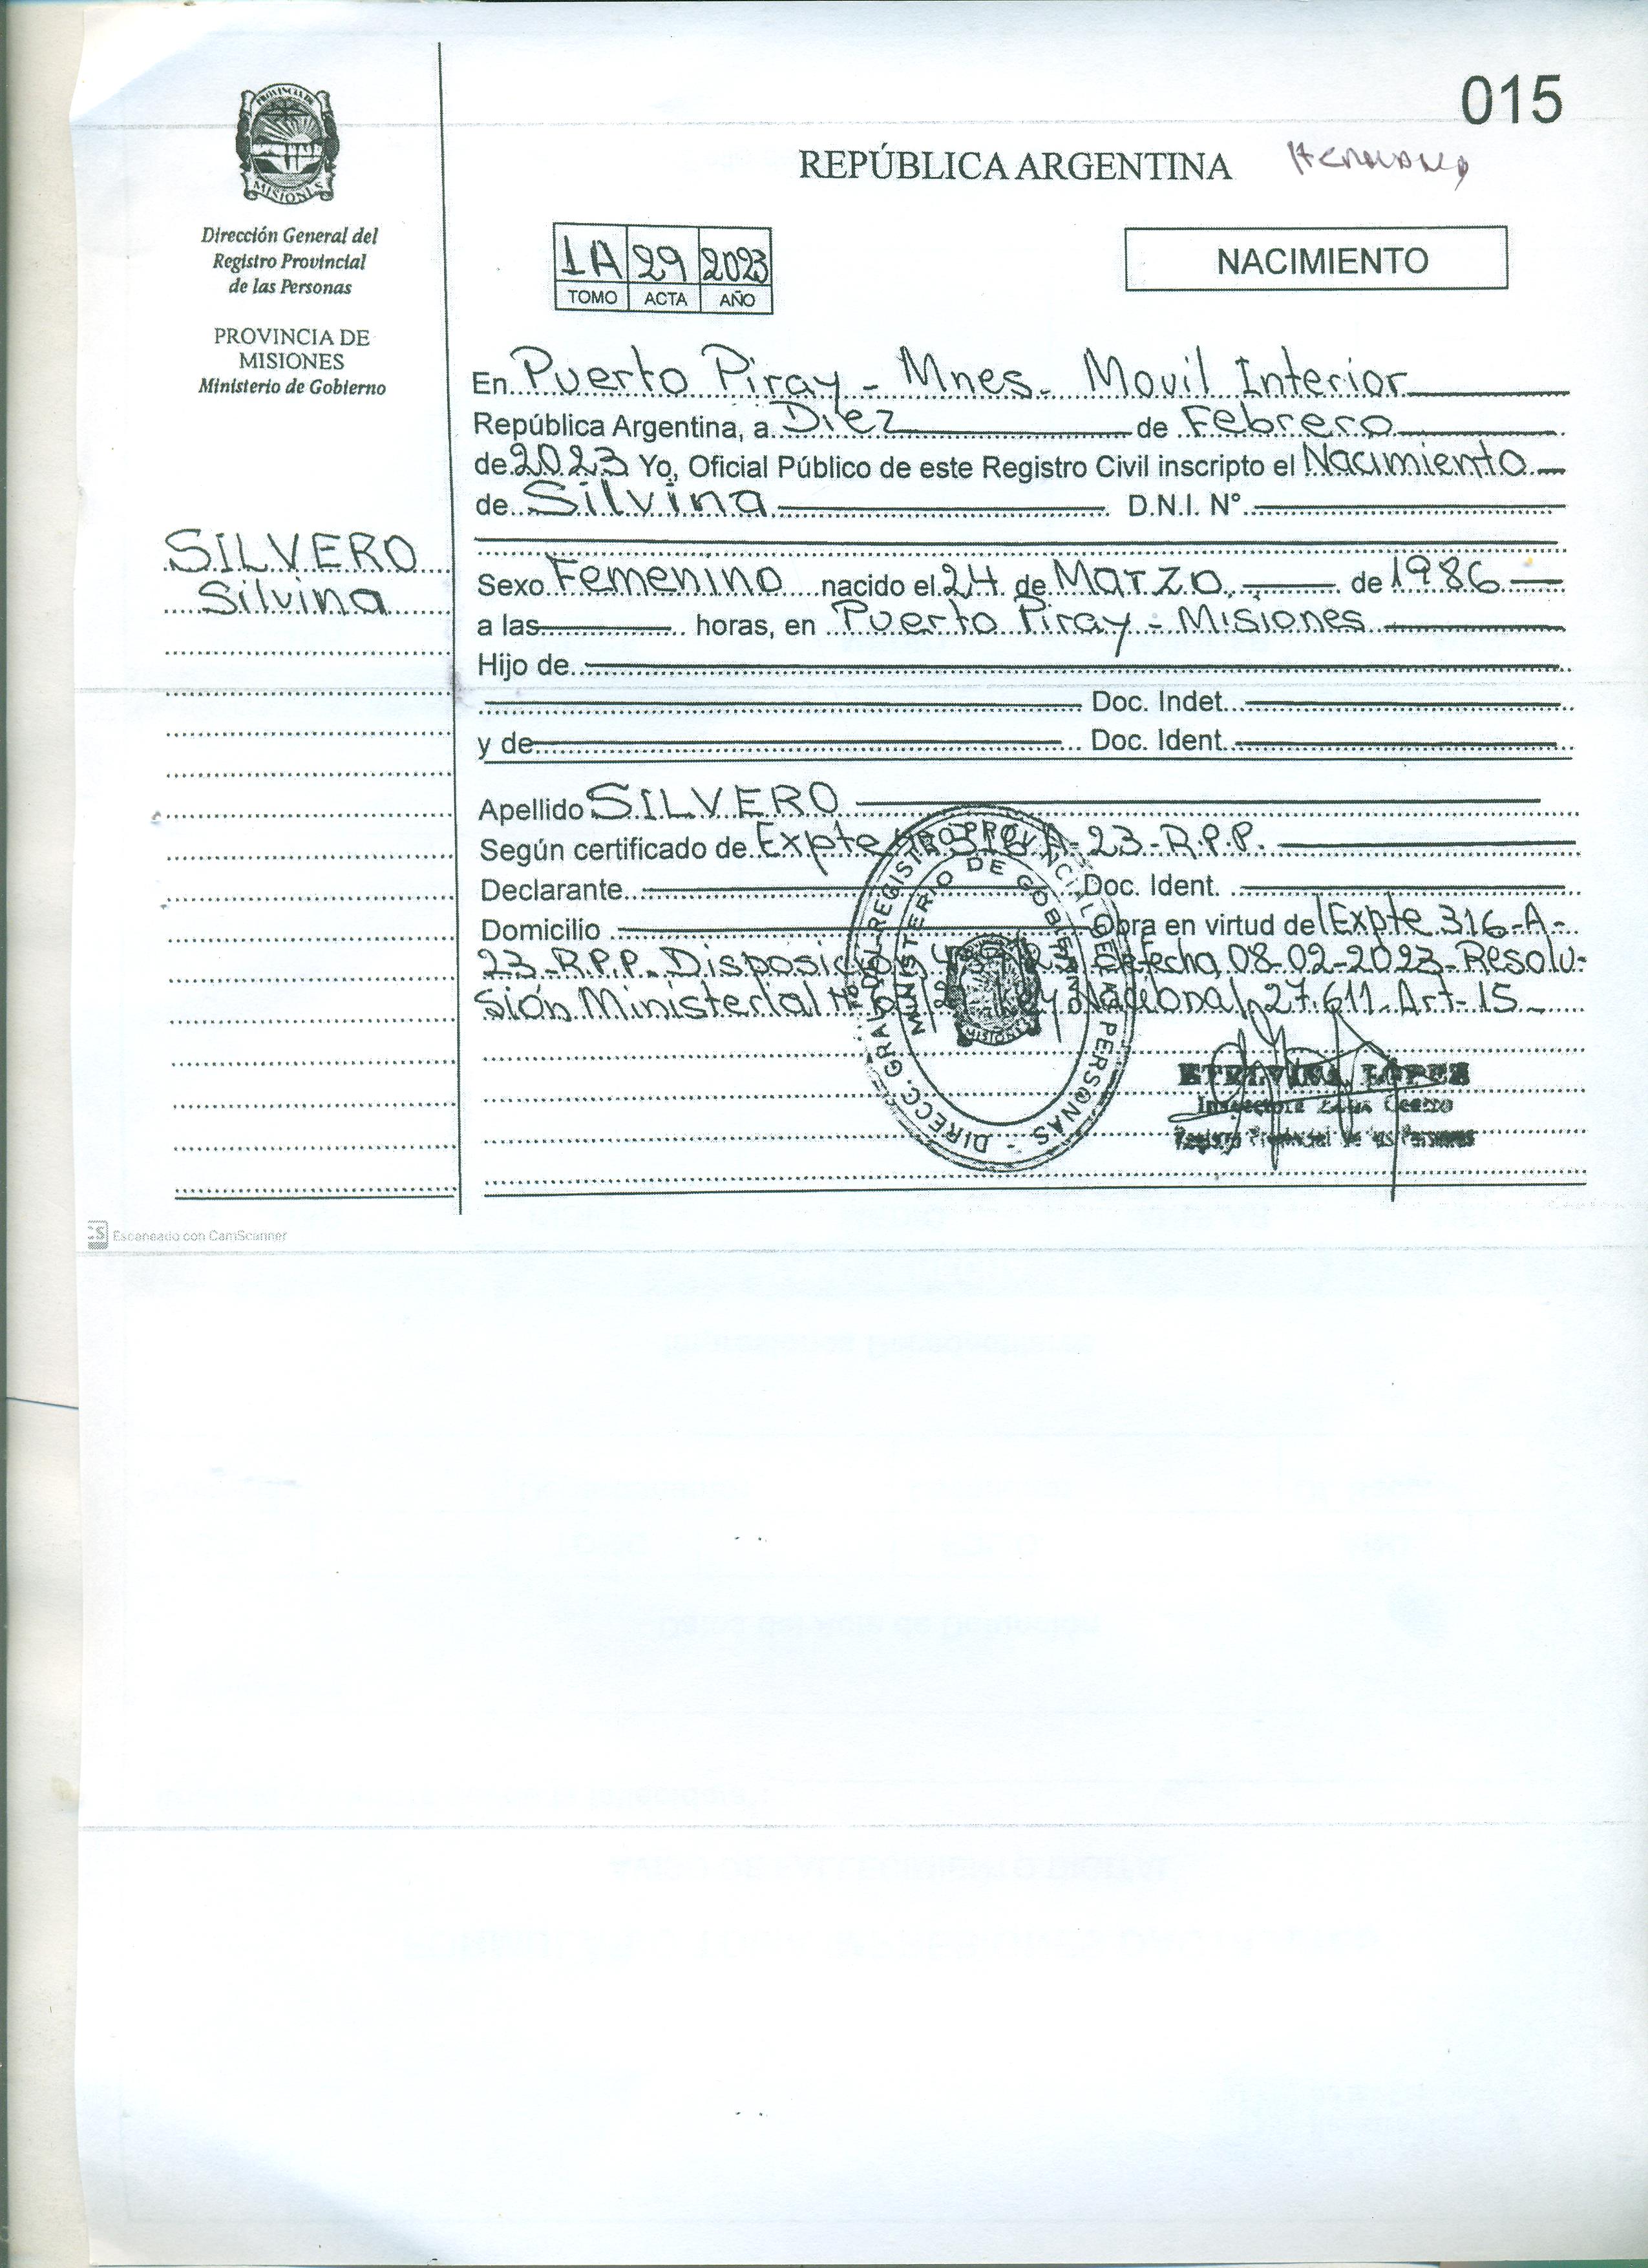 015
REPÚBLICA ARGENTINA
PROVINCIA DE
MISIONES
Dirección General del
Registro Provincial
de las Personas
PROVINCIA DE
MISIONES
Ministerio de Gobierno
SILVERO
Silvina
1A 29 2023
TOMO ACTA AÑO
NACIMIENTO
En Puerto Piray - Mnes. Movil Interior
República Argentina, a Diez de Febrero
de 2023 Yo, Oficial Público de este Registro Civil inscripto el Nacimiento
de Silvina D.N.I. N°
Sexo Femenino nacido el 24 de Marzo de 1986
a las horas, en Puerto Piray - Misiones
Hijo de
Doc. Indet.
y de Doc. Ident.
Apellido SILVERO
Según certificado de Expte 316 A-23-R.P.P.
Declarante Doc. Ident.
Domicilio Obra en virtud del Expte 316-A-
23-R.P.P. Disposición de fecha 08-02-2023-Resolu-
sión Ministerial N° Ley Nacional 27.611-Art-15
DIRECC. GRAL. DEL REGISTRO PROVINCIAL DE LAS PERSONAS
MINISTERIO DE GOBIERNO
MISIONES
LOPEZ
Inspectora Zona Centro
Registro Provincial de las Personas
CS Escaneado con CamScanner